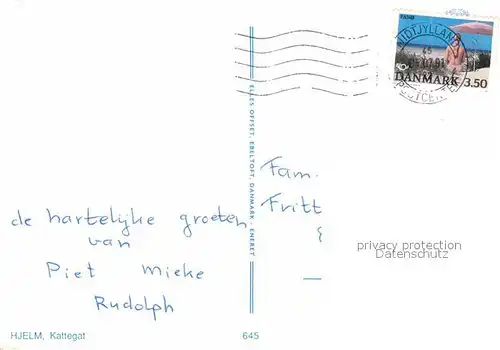 FANØ
MIDTJYLLANDS
POSTCENTER
DANMARK 3.50
ELLES OFFSET, EBELTOFT, DANMARK, ENERET
Fam.
Fritt
de hartelijke groeten
van
Piet Mieke
Rudolph
privacy protection
Datenschutz
HJELM, Kattegat 645